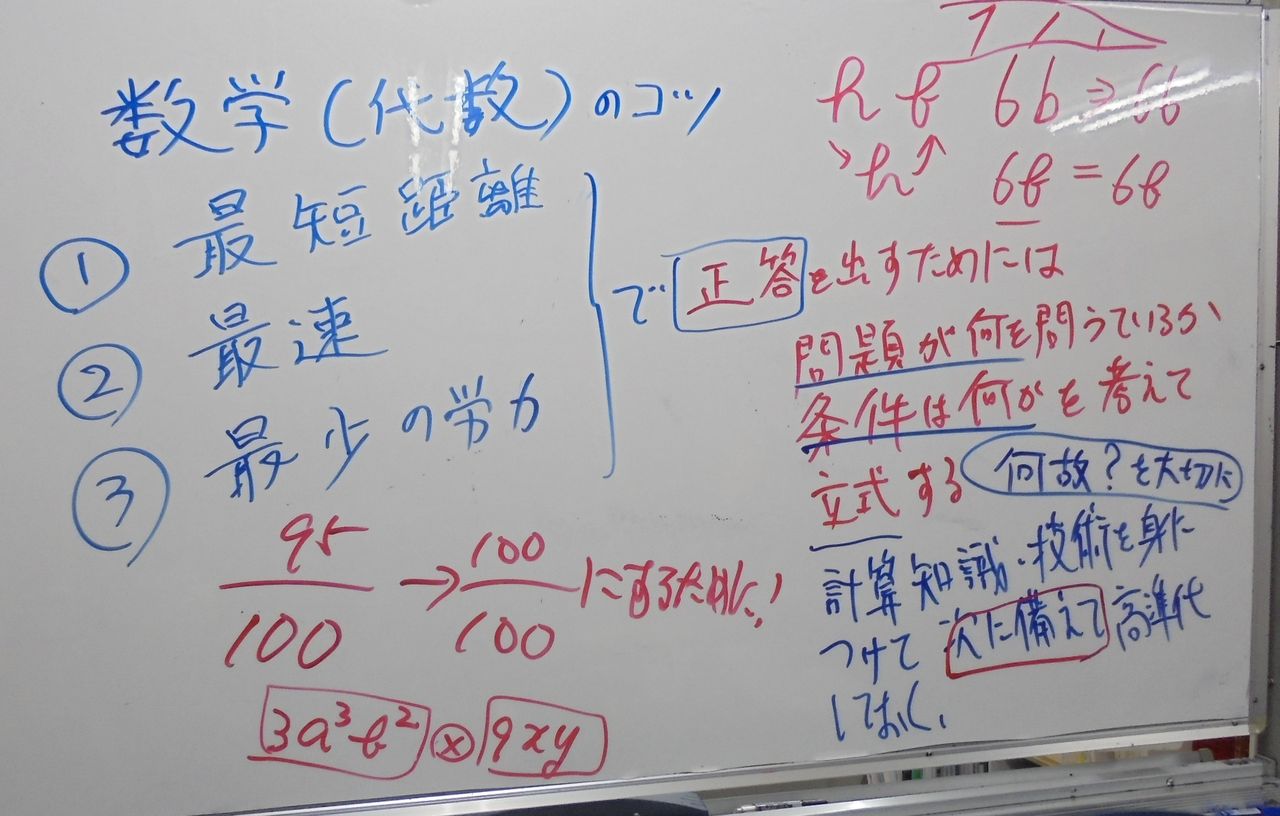 数学(代数)のコツ
① 最短距離
② 最速
③ 最少の労力
で 正答を出すためには
問題が何を問うているか
条件は何かを考えて
立式する 何故?を大切に
計算知識・技術を身に
つけて 次に備えて 高準代
しておく。
h b 6b ⇒ 66
h 6b = 6b
95/100 → 100/100 にするために!
3a³b² × 9xy